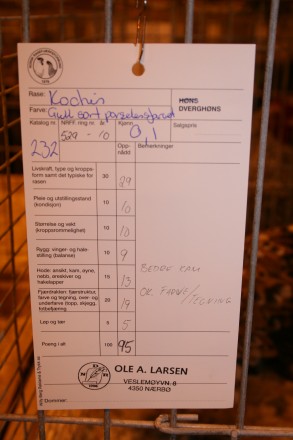 Rase: Kochin
H̶Ø̶N̶S̶
DVERGHØNS
Farve: Gull sort porselensfarvet
Katalog nr. NRFF.ring nr. Kjønn Salgspris
232 529 - 10 0,1
Opp-
nådd
Bemerkninger
Livskraft, type og kropps-
form samt det typiske for
rasen 30 29
Pleie og utstillingsstand
(kondisjon) 10 10
Størrelse og vekt
(kroppsrommelighet) 10 10
Rygg, vinge- og hale-
stilling (balanse) 10 9
Hode: ansikt, kam, øyne,
nebb, øreskiver og
hakelapper 15 13
BEDRE KAM
Fjærdrakten: fjærstruktur,
farve og tegning, over- og
underfarve (topp, skjegg,
fotbefjæring) 20 19
OK. FARVE/
TEGNING
Løp og tær 5 5
Poeng i alt 100 95
OLE A. LARSEN
VESLEMØYVN. 6
4350 NÆRBØ
Dommer: